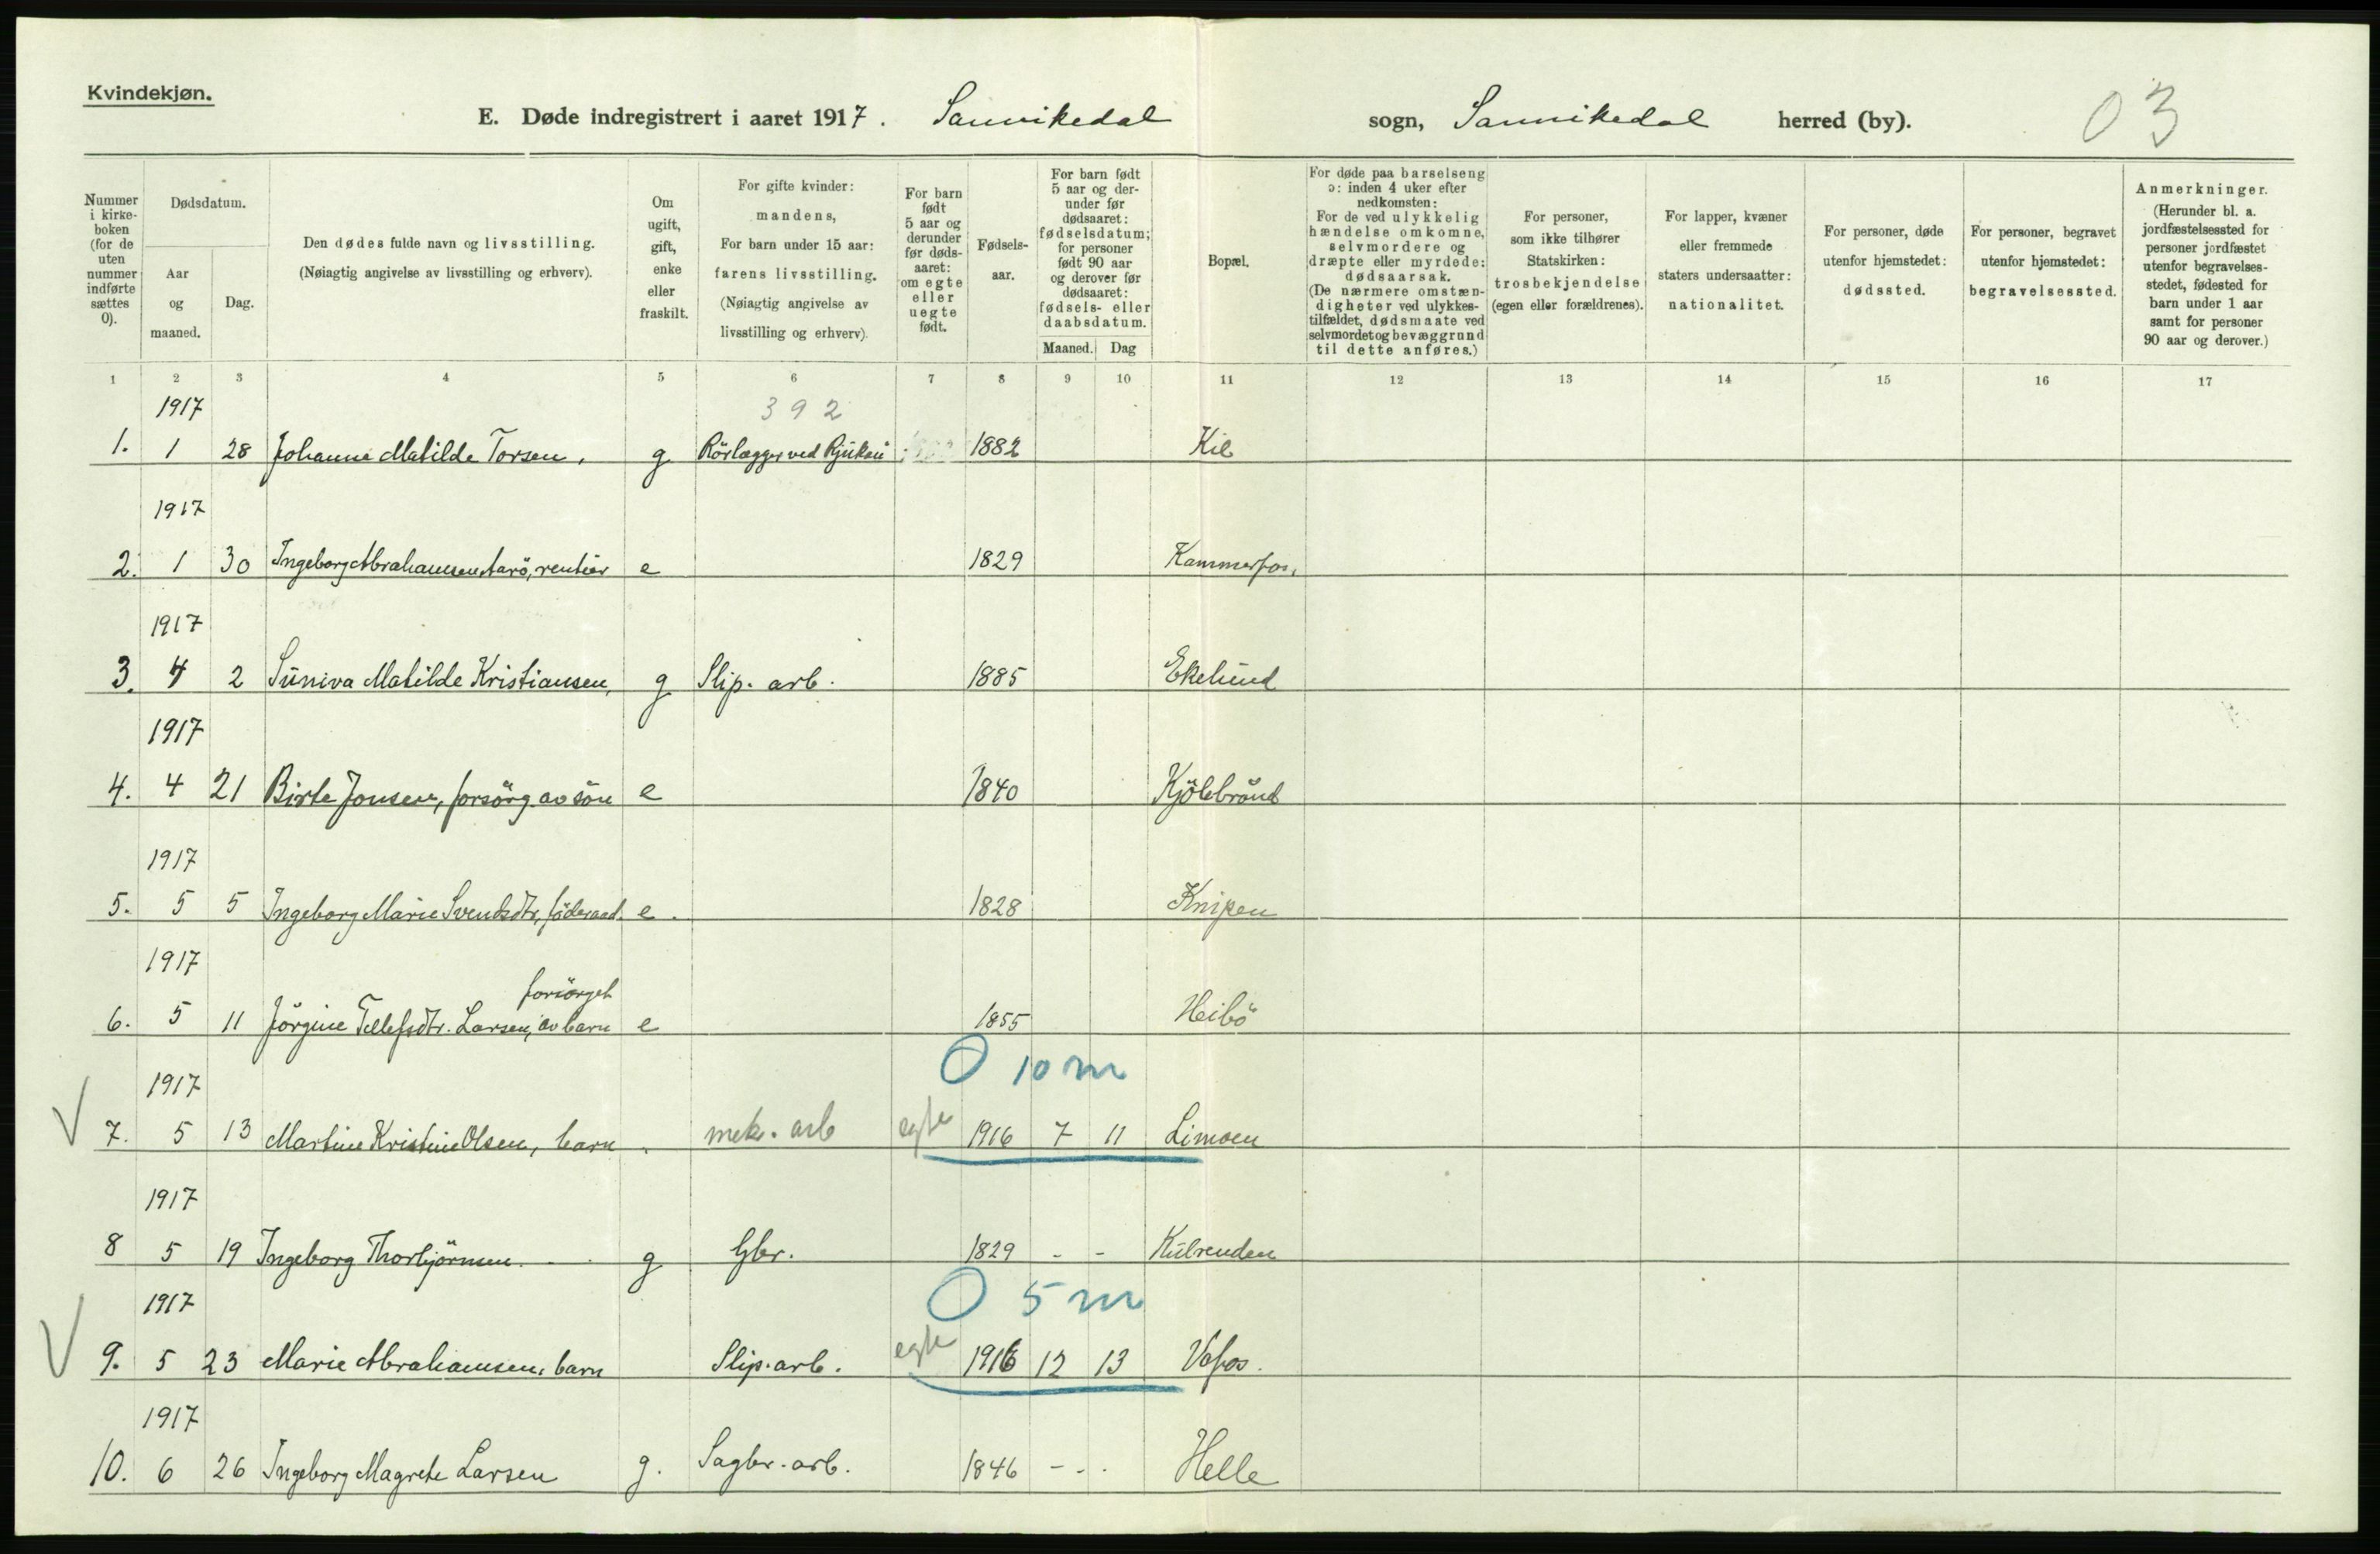 Kvindekjøn.
E. Døde indregistrert i aaret 1917. Sannikedal sogn, Sannikedal herred (by). 03
Nummer i kirkeboken (for de uten nummer indførte sættes 0).
Dødsdatum.
Aar og maaned.
Dag.
Den dødes fulde navn og livsstilling.
(Nøiagtig angivelse av livsstilling og erhverv).
Om ugift, gift, enke eller fraskilt.
For gifte kvinder: mandens,
For barn under 15 aar: farens livsstilling.
(Nøiagtig angivelse av livsstilling og erhverv).
For barn født 5 aar og derunder før dødsaaret: om egte eller uegte født.
Fødselsaar.
For barn født 5 aar og derunder før dødsaaret: fødselsdatum; for personer født 90 aar og derover før dødsaaret: fødsels- eller daabsdatum.
Maaned. Dag
Bopæl.
For døde paa barselseng ɔ: inden 4 uker efter nedkomsten:
For de ved ulykkelig hændelse omkomne, selvmordere og dræpte eller myrdede: dødsaarsak.
(De nærmere omstændigheter ved ulykkestilfældet, dødsmaate ved selvmordet og bevæggrund til dette anføres.)
For personer, som ikke tilhører Statskirken: trosbekjendelse (egen eller forældrenes).
For lapper, kvæner eller fremmede staters undersaatter: nationalitet.
For personer, døde utenfor hjemstedet: dødssted.
For personer, begravet utenfor hjemstedet: begravelsessted.
Anmerkninger.
(Herunder bl. a. jordfæstelsessted for personer jordfæstet utenfor begravelsesstedet, fødested for barn under 1 aar samt for personer 90 aar og derover.)
1 2 3 4 5 6 7 8 9 10 11 12 13 14 15 16 17
1917 392
1. 1 28 Johanne Matilde Torsen, g Rörlægger ved Rjukan 1882 Kil
1917
2. 1 30 Ingeborg Abrahamsen Aarö, rentier e 1829 Kammerfos.
1917
3. 4 2 Suniva Matilde Kristiansen, g Slip. arb. 1885 Ekelund
1917
4. 4 21 Birte Jonsen, forsörg. av sön e 1840 Kjölebrönd
1917
5. 5 5 Ingeborg Marie Svendsdtr, föderaad. e. 1828 Knipen
1917
forsörget
6. 5 11 Jörgine Tellefsdtr. Larsen, av barn e 1855 Heibö
1917 O 10 m
7. 5 13 Martine Kristine Olsen, barn. mek. arb egte 1916 7 11 Limoen
1917
8 5 19 Ingeborg Thorbjörnsen. g Gbr. 1829 - - Kulrenden
1917 O 5 m
9. 5 23 Marie Abrahamsen, barn Slip. arb. egte 1916 12 13 Vafos.
1917
10. 6 26 Ingeborg Magrete Larsen g. Sagbr. arb. 1846 - - . Helle